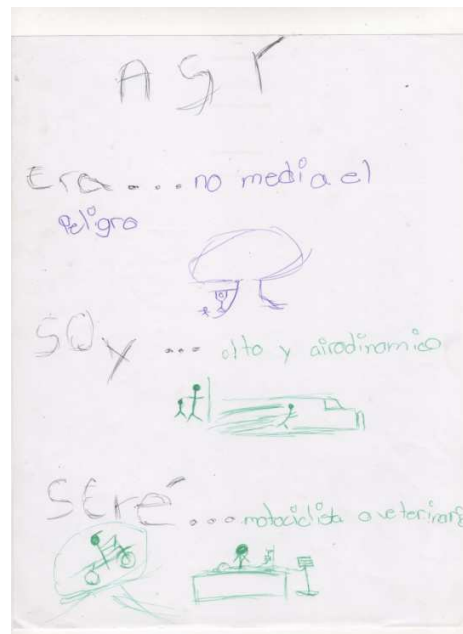 ASY
Era... no media el
Peligro
SOy ... alto y airodinamico
SEré... motociclista o veterinario